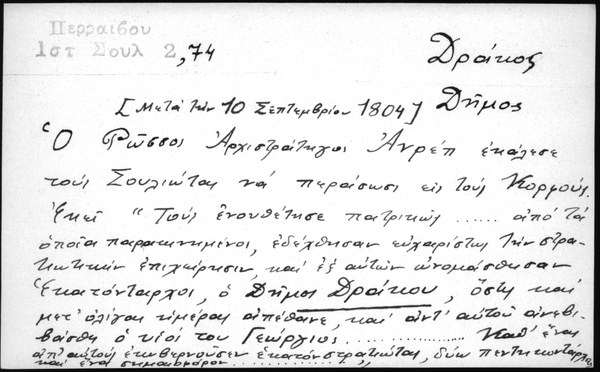 Περραιβού
1στ Σουλ 2,74
Δράκος
Δῆμος
[Μετά τήν 10 Σεπτεμβρίου 1804]
Ὁ Ρῶσσος Ἀρχιστράτηγος Ἀνρέπ ἐκάλεσε
τούς Σουλιώτας νά περάσωσι εἰς τούς Κορφούς.
Ἐκεῖ "Τούς ἐνουθέτησε πατρικῶς ...... ἀπό τά
ὁποῖα παρακινημένοι, ἐδέχθησαν εὐχαρίστως τήν στρα-
τιωτικήν ἐπιχείρησιν, καί ἐξ αὐτῶν ὠνομάσθησαν
Ἑκατόνταρχοι, ὁ Δῆμος Δράκου, ὅστις καί
μετ' ὀλίγας ἡμέρας ἀπέθανε, καί ἀντ' αὐτοῦ ἀνεβι-
βάσθη ὁ υἱός του Γεώργιος................ Καθ' ἕνας
ἀπ' αὐτούς ἐκυβερνοῦσεν ἑκατόν στρατιώτας, δύω πεντηκοντάρχους
καί ἕνα σημαιοφόρον